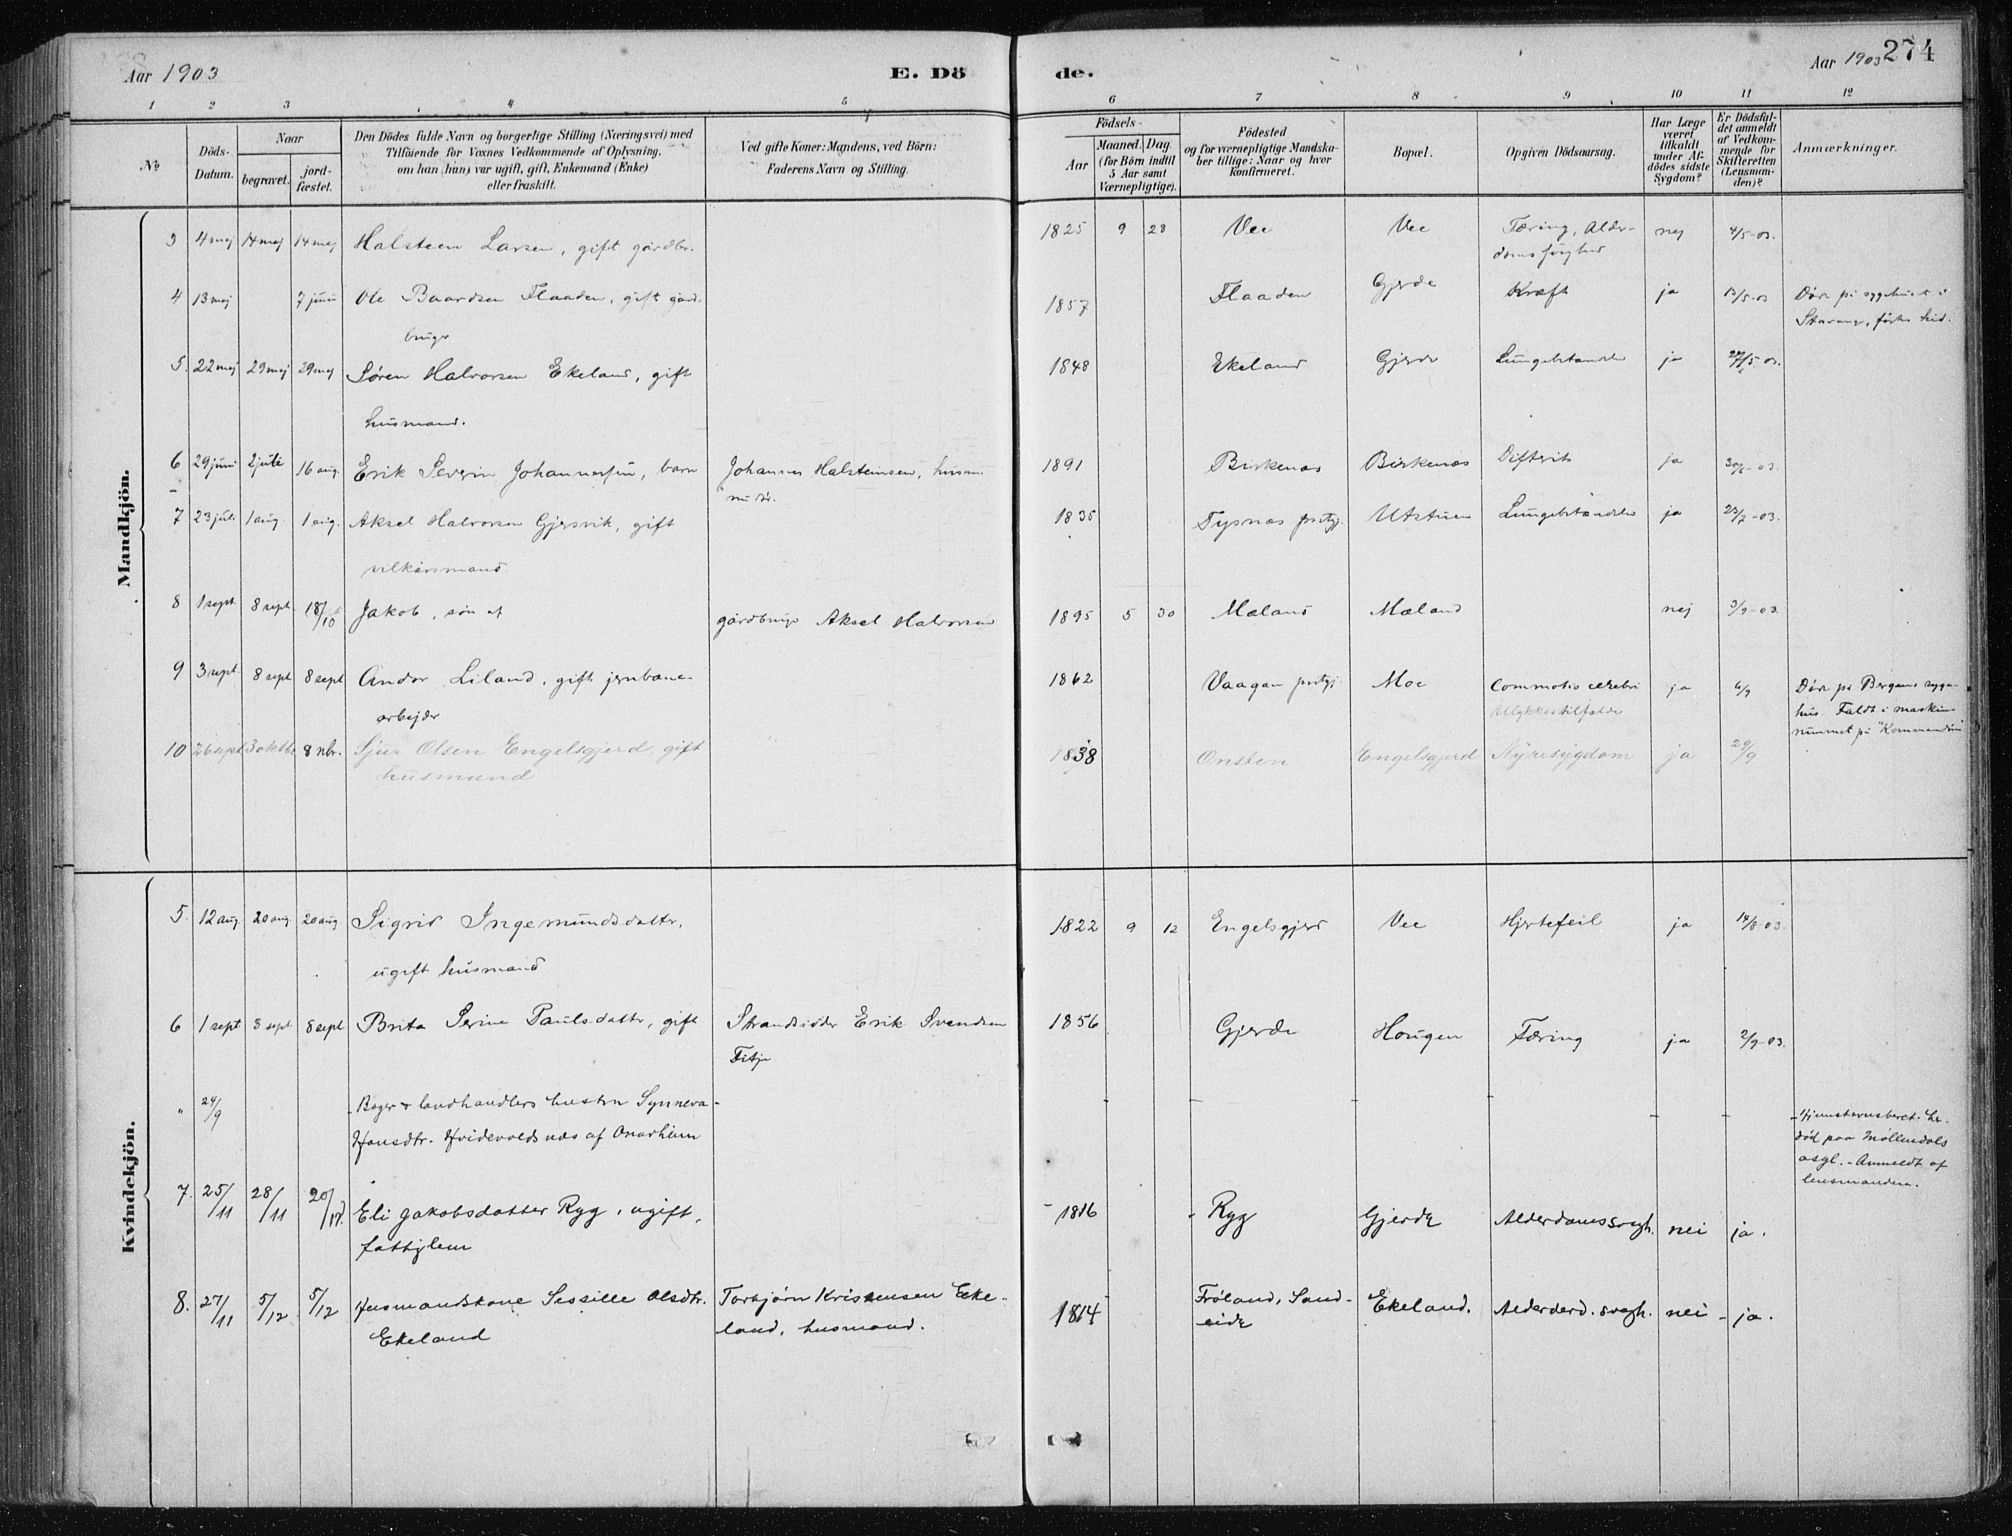 Aar 1903
E. Dö
de.
Aar 1903
274
1 2 3 4 5 6 7 8 9 10 11 12
No
Döds-
Datum.
Naar
begravet.
jord-
fæstet.
Den Dödes fulde Navn og borgerlige Stilling (Næringsvei) med
Tilföiende for Voxnes Vedkommende af Oplysning,
om han (hun) var ugift, gift, Enkemand (Enke)
eller fraskilt.
Ved gifte Koner: Mandens, ved Börn:
Faderens Navn og Stilling.
Födsels-
Aar
Maaned. Dag.
(for Börn indtil
5 Aar samt
Værnepligtige).
Födested
og for værnepligtige Mandska-
ber tillige: Naar og hvor
konfirmeret.
Bopæl.
Opgiven Dödsaarsag.
Har Læge
været
tilkaldt
under Af-
dödes sidste
Sygdom?
Er Dödsfal-
det anmeldt
af Vedkom-
mende for
Skifteretten
(Lensman-
den)?
Anmærkninger.
Mandkjön.
3 4 mej 14 mej 14 mej Halsteen Larsen, gift gårdbr. 1825 9 28 Vee Vee Tæring, Alder-
domssvaghed nej 4/5-03.
4 13 mej 7 juni Ole Baardsen Flaaden, gift gård-
bruger 1857 Flaaden Gjerde Kræft ja 13/5-03 Døde på sygehuset i
Stavanger, førtes hid.
5. 22 mej 29 mej 29 mej Søren Halvorsen Ekeland, gift
husmand. 1848 Ekeland Gjerde Lungebetændelse ja 22/5-03.
6 29 juni 2 juli 16 aug. Erik Severin Johannesen, barn Johannes Halsteinsen, husm. 1891 Birkenæs Birkenæs Difterit ja 30/6-03.
7 23 juli 1 aug. 1 aug. Aksel Halvorsen Gjersvik, gift
vilkårsmand 1835 Tysnæs prstgj. Utstuen Lungebetændelse ja 23/7-03.
8 1 sept 8 sept 18/10 Jakob, søn af gårdbruger Aksel Halvorsen 1895 5 30 Mæland Mæland nej 3/9-03.
9 3 sept. 8 sept 8 sept Andor Liland, gift jernbane-
arbejder 1862 Vaagan prstgj. Moe Commotio cerebri
Ulykkestilfælde ja 6/9 Døde på Bergens syge-
hus. Faldt i maskin-
rummet på "Kommandøren"
10 26 sept 3 oktbr 8 nbr. Sjur Olsen Engelsgjerd, gift
husmand 1838 Onsten Engelsgjerd Nyresygdom ja 29/9
Kvindekjön.
5. 12 aug. 20 aug. 20 aug. Sigrid Ingemundsdatter,
ugift husmand 1822 9 12 Engelsgjerd Vee Hjertefeil ja 14/8-03.
6 1 sept 8 sept 8 sept Brita Serine Paulsdatter, gift Strandsidder Erik Svendsen
Fitje 1856 Gjerde Hougen Tæring ja 2/9-03.
" 24/9 Bager & landhandlers hustru Synneva
Hansdtr. Hvidevoldsnæs af Onarheim Hjemstavnsberet. her.
død paa Møllendals
asyl. - Anmeldt af
lensmanden.
7. 25/11 28/11 20/12. Eli Jakobsdatter Ryg, ugift,
fattiglem 1816 Ryg Gjerde Alderdomssvagh. nei ja.
8. 27/11 5/12 5/12 Husmandskone Sessille Olsdtr.
Ekeland Torbjørn Kristensen Eke-
land, husmand. 1814 Frøland, Sand-
eide Ekeland. Alderdomd. svagh. nei - ja.